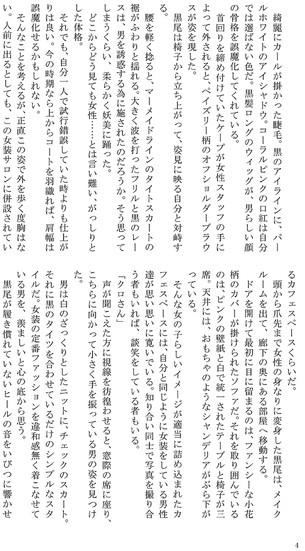 綺麗にカールが掛かった睫毛。黒のアイラインに、パー
ルホワイトのアイシャドウ。コーラルピンクの口紅は自分
では選ばない色だ。黒髪ロングのウィッグが、男らしい顔
の骨格を誤魔化してくれている。
首回りを締め付けていたケープが女性スタッフの手に
よって外されると、ペイズリー柄のオフショルダーブラウ
スが姿を現した。
黒尾は椅子から立ち上がって、姿見に映る自分と対峙す
る。
腰を軽く捻ると、マーメイドラインのタイトスカートの
裾がふわりと揺れる。大きく波を打ったフリルと黒のレー
スは、男を誘惑する為に施されたのだろうか。そう思って
しまうくらい、柔らかく妖美に踊った。
どこからどう見ても女性……とは言い難い、がっしりと
した体格。
それでも、自分一人で試行錯誤していた時よりも仕上が
りは良い。今の時期なら上からコートを羽織れば、肩幅は
誤魔化せるかもしれない。
そんなことを考えるが、正直この姿で外を歩く度胸はな
い。人前に出るとしても、この女装サロンに併設されてい
るカフェスペースくらいだ。
頭から爪先まで女性の身なりに変身した黒尾は、メイク
ルームを出て、廊下の奥にある部屋へ移動する。
ドアを開けて最初に目に留まるのは、ファンシーな小花
柄のカバーが掛けられたソファだ。それを取り囲んでいる
のは、ピンクの壁紙と白で統一されたテーブルと椅子が三
席。天井には、おもちゃのようなシャンデリアがぶら下が
っている。
そんな女の子らしいイメージが適当に詰め込まれたカ
フェスペースには、自分と同じように女装をしている男性
達が思い思いに寛いでいる。知り合い同士で写真を撮り合
う者もいれば、談笑をしている者もいる。
「クロさん」
声が聞こえた方に視線を彷徨わせると、窓際の席に座り、
こちらに向かって小さく手を振っている男の姿を見つけ
た。
男は白のざっくりとしたニットに、チェックのスカート。
それに黒のタイツを合わせているだけのシンプルなスタ
イルだ。女装の定番ファッションを違和感無く着こなせて
いる男を、羨ましいと心の底から思う。
黒尾が履き慣れていないヒールの音をいびつに響かせ
4